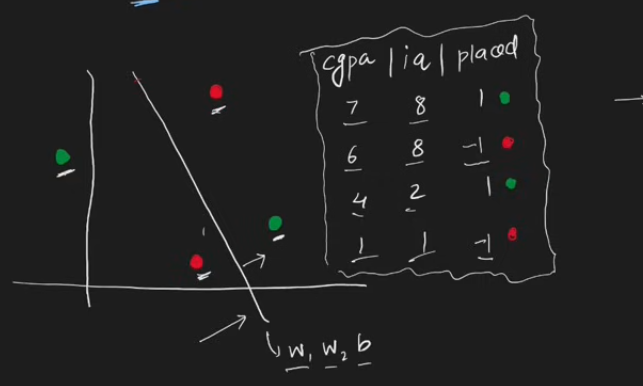 cgpa | iq | placed
7 8 1
6 8 -1
4 2 1
1 1 -1
w₁ w₂ b